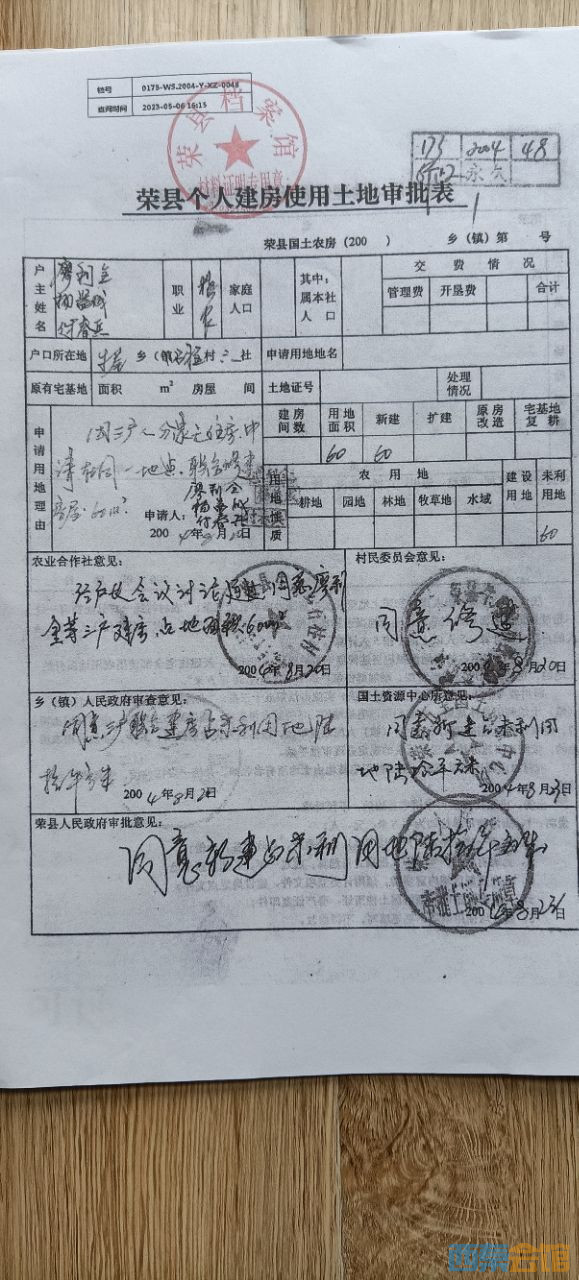 档号 0175-WS.2004-Y-XZ-0048
查阅时间 2023-05-06 16:15
荣县档案馆
材料证明专用章
175 2004 48
永久
荣县个人建房使用土地审批表
荣县国土农房（200 ）乡（镇）第 号
户主姓名 廖利全
职业 农
家庭人口
其中：属本社人口
交费情况
管理费 开垦费 合计
户口所在地 乡（镇） 村 社 申请用地地名
原有宅基地 面积 m² 房屋 间 土地证号 处理情况
申请用地理由
因三户人分家无住房，申
请在同一地点，联合修建
房屋 60m²
申请人：廖利全
2004年8月20日
建房间数 用地面积 新建 扩建 原房改造 宅基地复耕
60 60
用地性质
农用地 建设用地 未利用地
耕地 园地 林地 牧草地 水域
60
农业合作社意见：
经户代会议讨论通过，同意廖利
全等三户建房占地面积60m²
2004年8月20日
村民委员会意见：
同意修建
2004年8月20日
乡（镇）人民政府审查意见：
同意三户联合建房占未利用地陆
拾平方米
2004年8月2日
国土资源中心房意见：
同意新建占未利用
地陆拾平方米
2004年8月23日
荣县人民政府审批意见：
同意新建占未利用地陆拾平方米
2004年8月23日
审批工作专用章